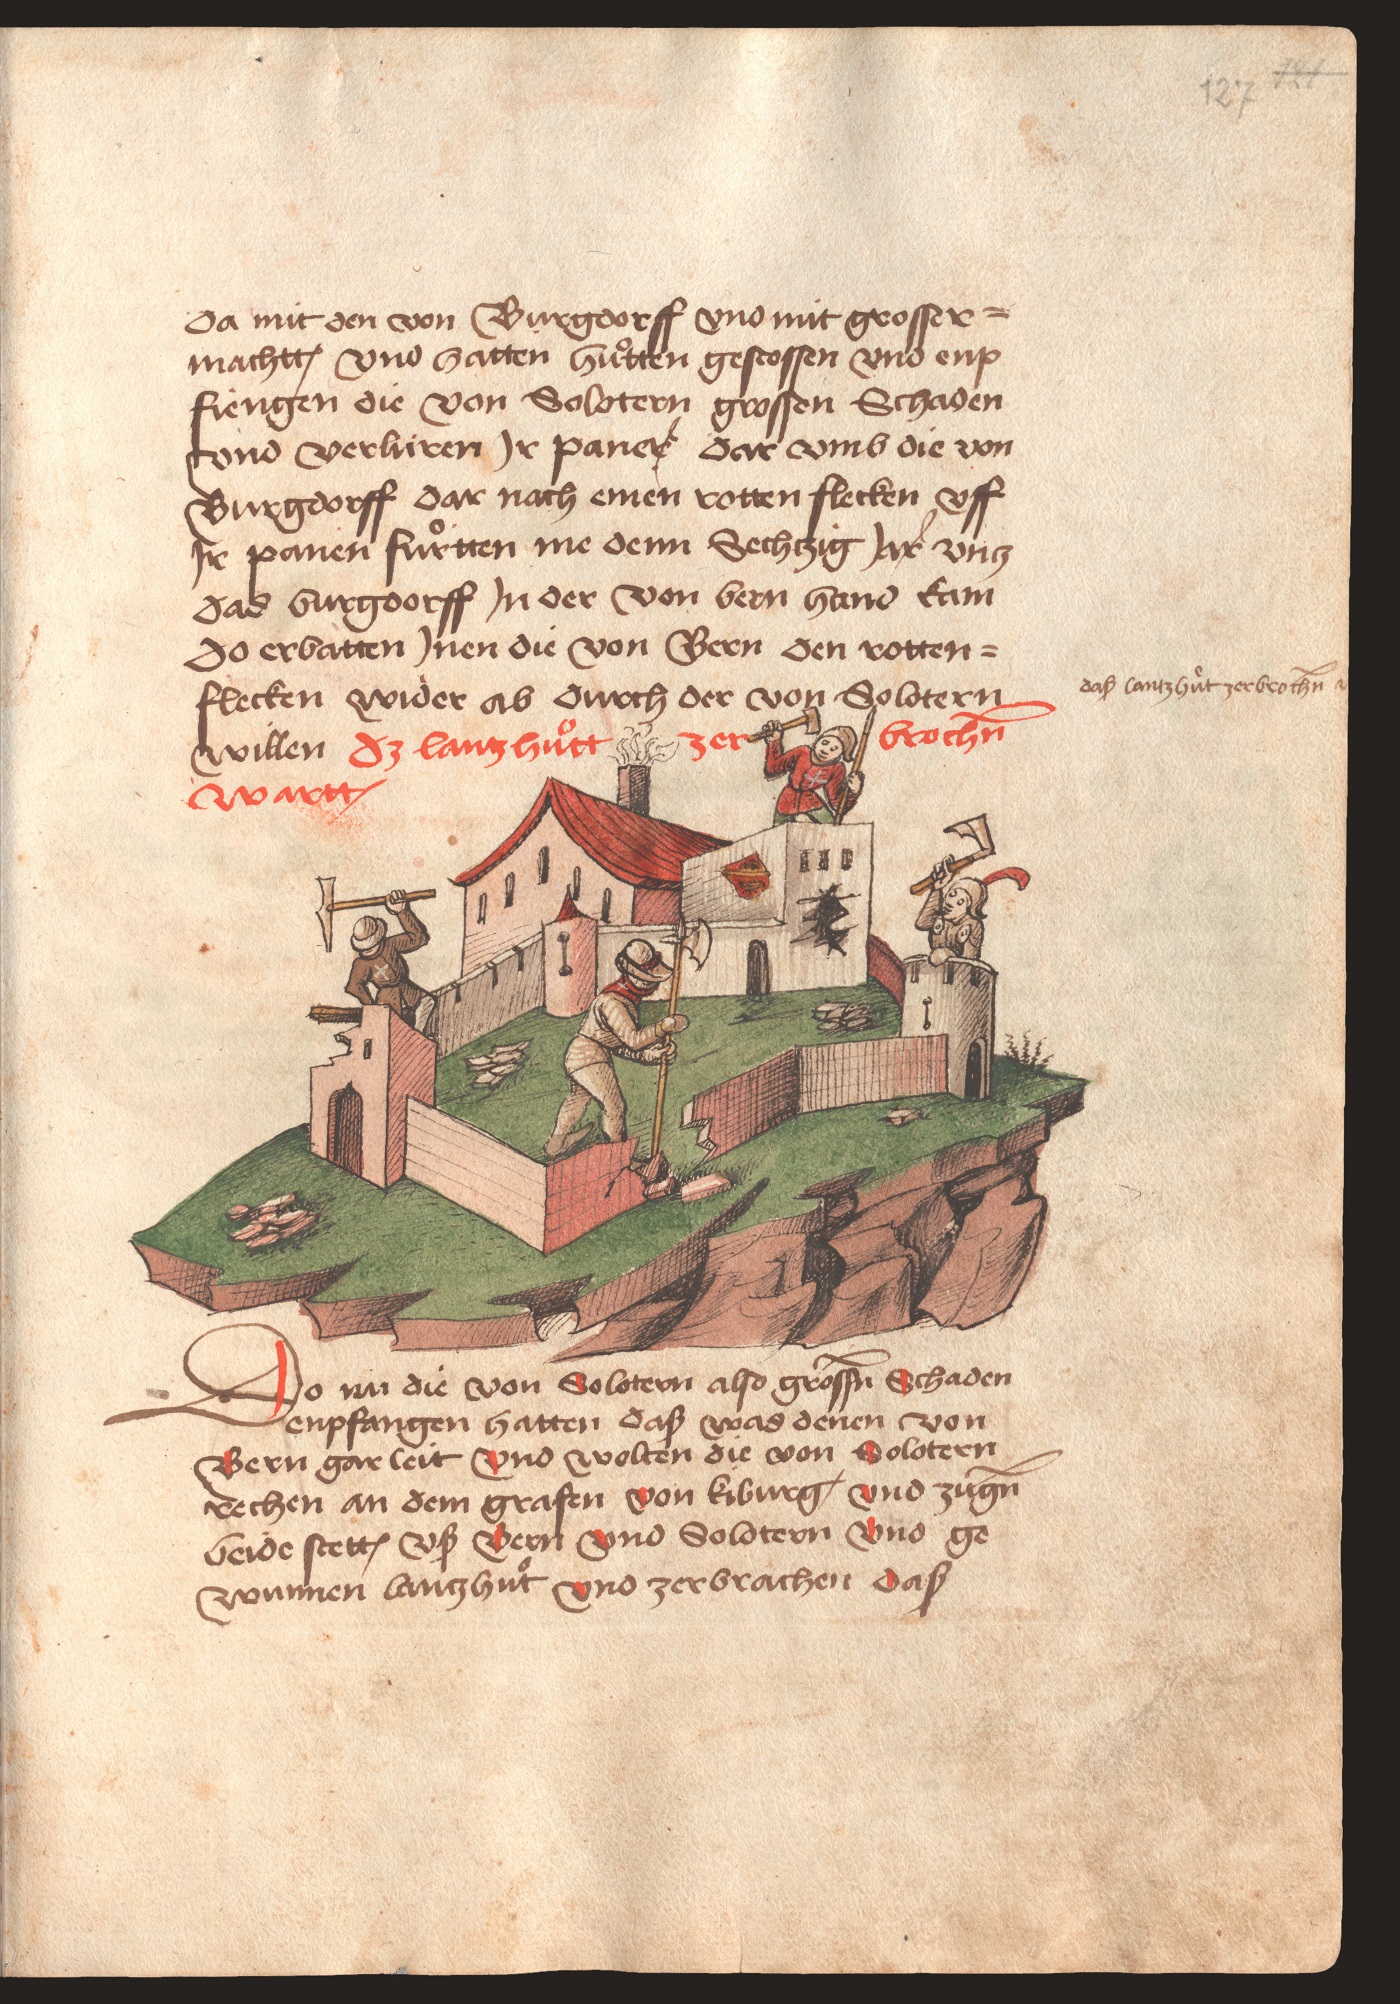 127 121
da mit den von Burgdorff vnd mit grosser=
machtt vnd hatten huͦtten gestossen vnd enp
fiengen die von Solotern grossen Schaden
vnd verluren Jr paner dar vmb die von
Burgdorff dar nach einen rotten flecken vff
Jr panen fuͦrtten me denn Sechtzig Jar vntz
das burgdorff Jn der von bern hand kam
do erbatten Jnen die von Bern den rotten=
flecken wider ab durch der von Solotern
willen dz lantzhuͦtt zerbrochn
wartt
das lantzhuͦt zerbrochn
Do nu die von Solotern also grossn Schaden
enpfangen hatten daß was denen von
Bern gar leit vnd wolten die von Solotern
rechen an dem grafen von kiburg vnd zugn
beide stett vß Bern vnd Solotern vnd ge
wunnen lantzhuͦt vnd zerbrachen daß